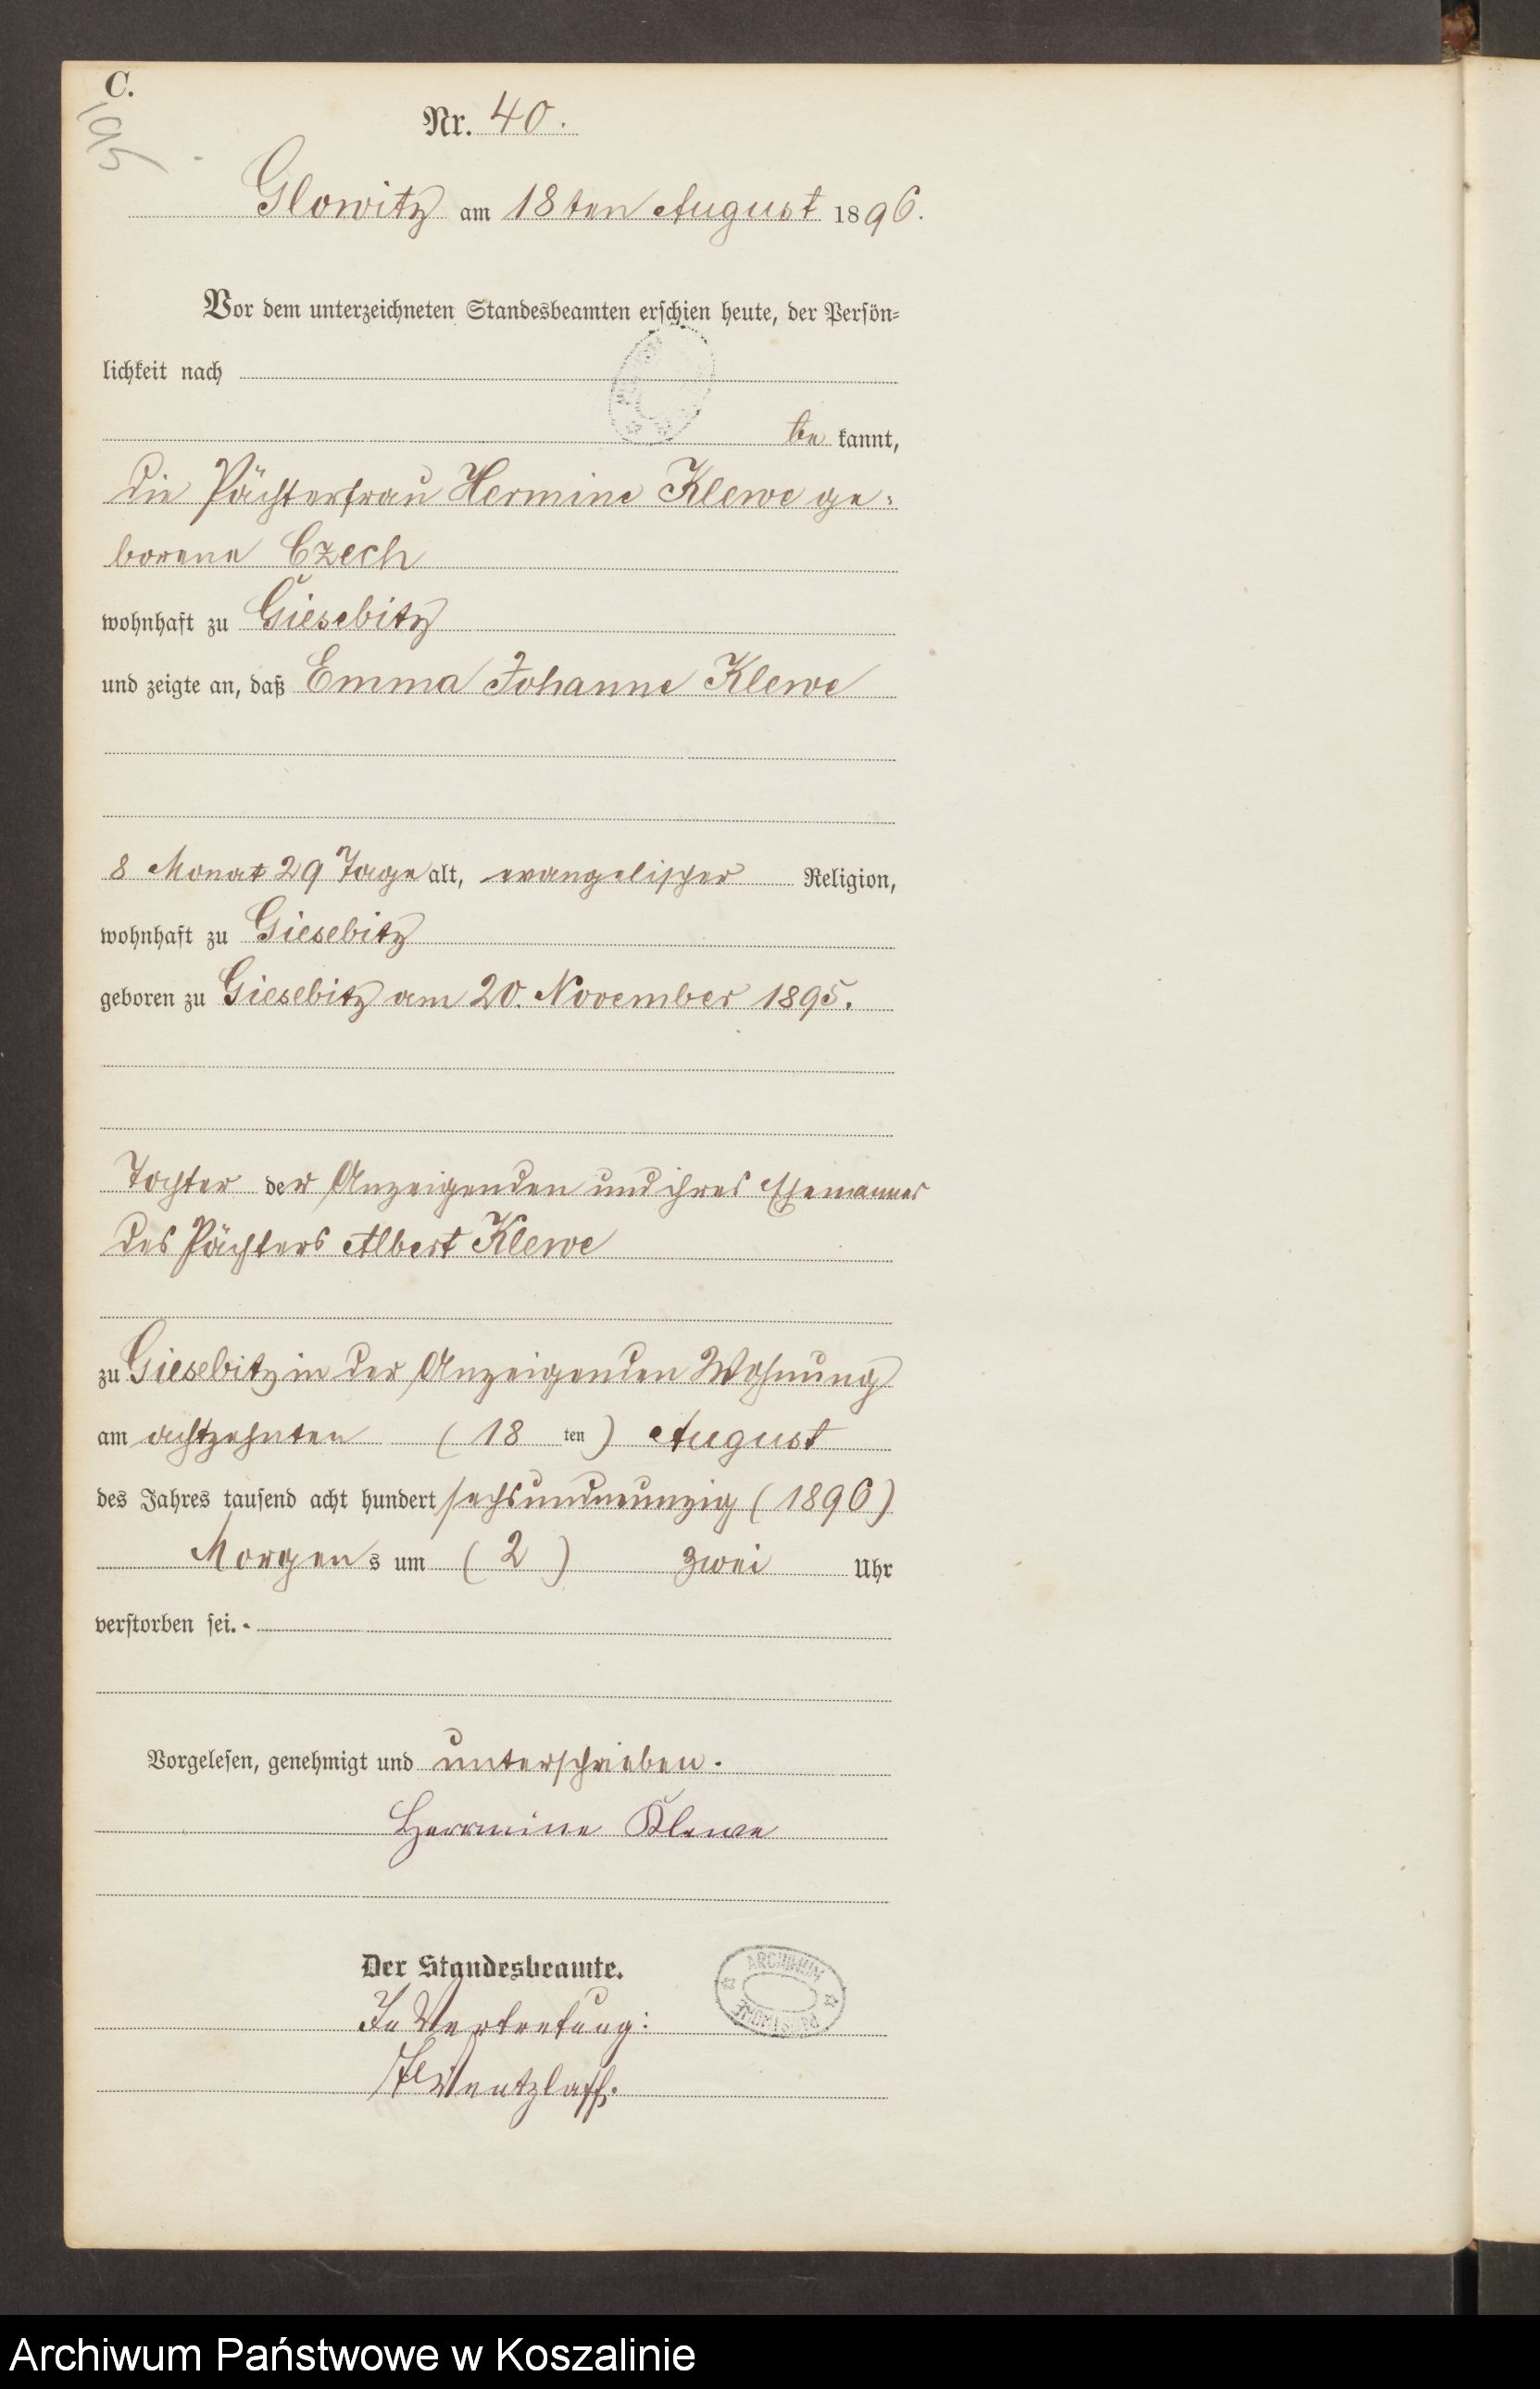 C.
195
Nr. 40.
Glowitz am 18ten August 1896.
Vor dem unterzeichneten Standesbeamten erschien heute, der Persön-
lichkeit nach
be kannt,
die Pächterfrau Hermine Klewe ge-
borene Czech
wohnhaft zu Giesebitz
und zeigte an, daß Emma Johanne Klewe
8 Monat 29 Tage alt, evangelischer Religion,
wohnhaft zu Giesebitz
geboren zu Giesebitz am 20. November 1895.
Tochter der Anzeigenden und ihres Ehemannes
des Pächters Albert Klewe
zu Giesebitz in der Anzeigenden Wohnung
am achtzehnten (18 ten) August
des Jahres tausend acht hundert sechsundneunzig (1896)
Morgens um (2) zwei Uhr
verstorben sei.
Vorgelesen, genehmigt und unterschrieben.
Hermine Klewe
Der Standesbeamte.
ARCHIWUM
In Vertretung:
Wentzlaff.
Archiwum Państwowe w Koszalinie